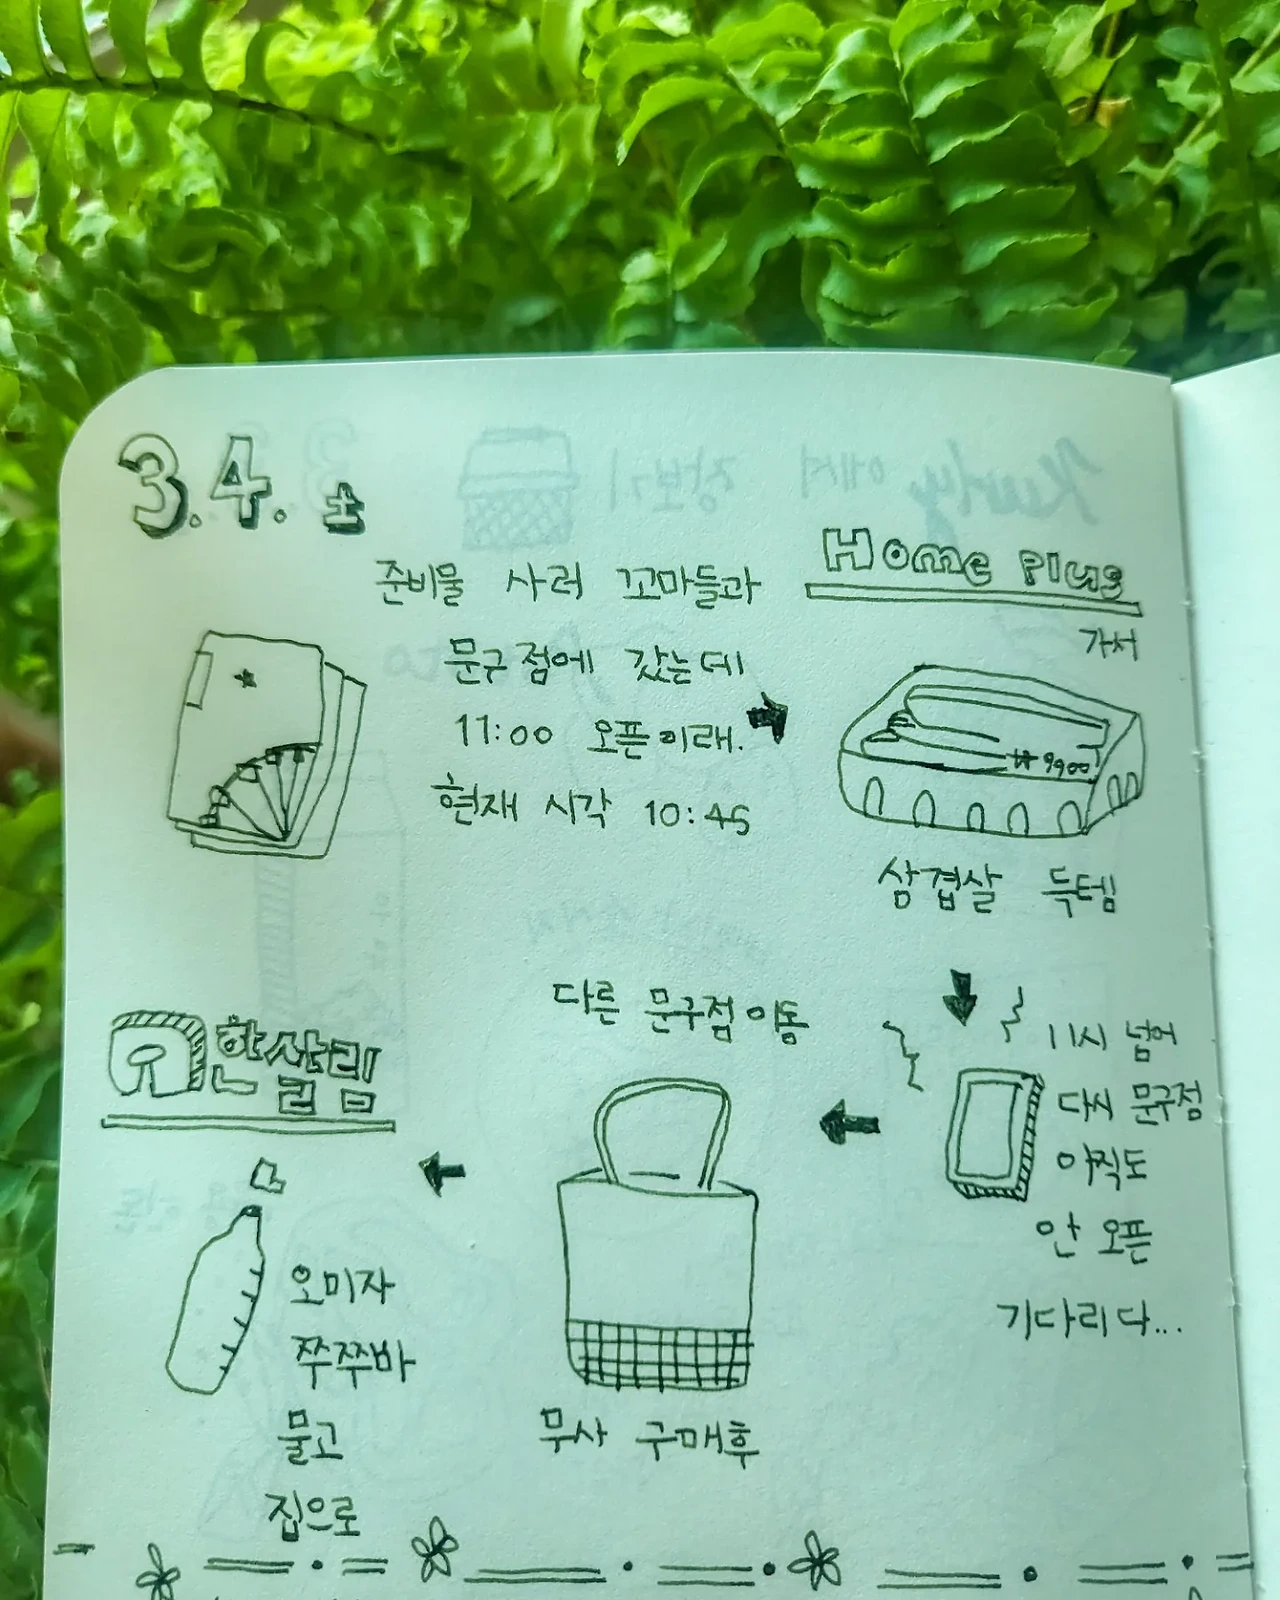 3.4. 토
준비물 사러 꼬마들과
문구점에 갔는데
11:00 오픈이래.
현재 시각 10:45
Home Plus
가서
₩9900
삼겹살 득템
11시 넘어
다시 문구점
아직도
안 오픈
기다리다...
다른 문구점 이동
무사 구매후
한살림
오미자
쭈쭈바
물고
집으로
Kurly 에서 장보기